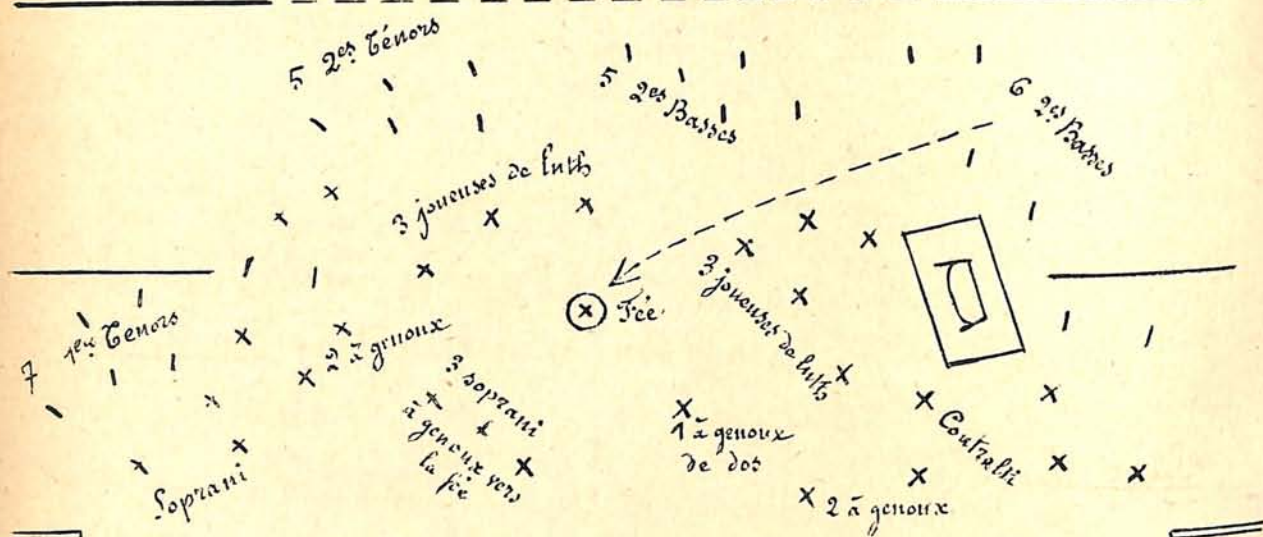 5 2es Ténors
5 2es Basses
6 2es Basses
3 joueuses de luth
Fée.
3 joueuses de luth
7 1ers Ténors
2 à genoux
3 soprani
à genoux vers
la fée
1 à genoux
de dos
Contralti
Soprani
2 à genoux